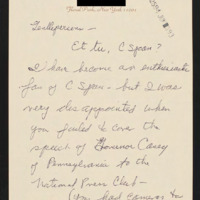 Floral Park, New York 11001
Gentleperson —
Et tu, C Span?
I have become an enthusiastic
fan of C Span — but I was
very disappointed when
you failed to cover the
speech of Governor Casey
of Pennsylvania to the
National Press Club —
(you had cameras